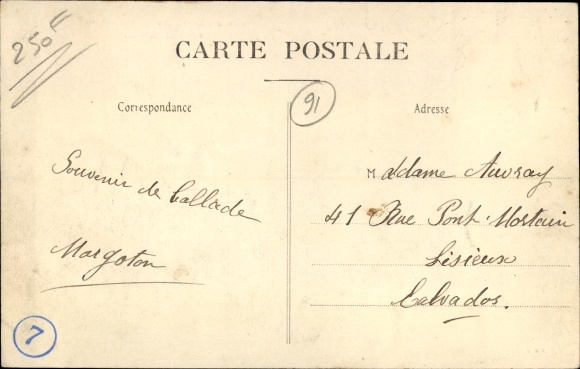 250F
CARTE POSTALE
91
Correspondance
Adresse
Souvenir de Ballade
Margoton
Madame Auvray
41 Rue Pont-Mortain
Lisieux
Calvados.
7